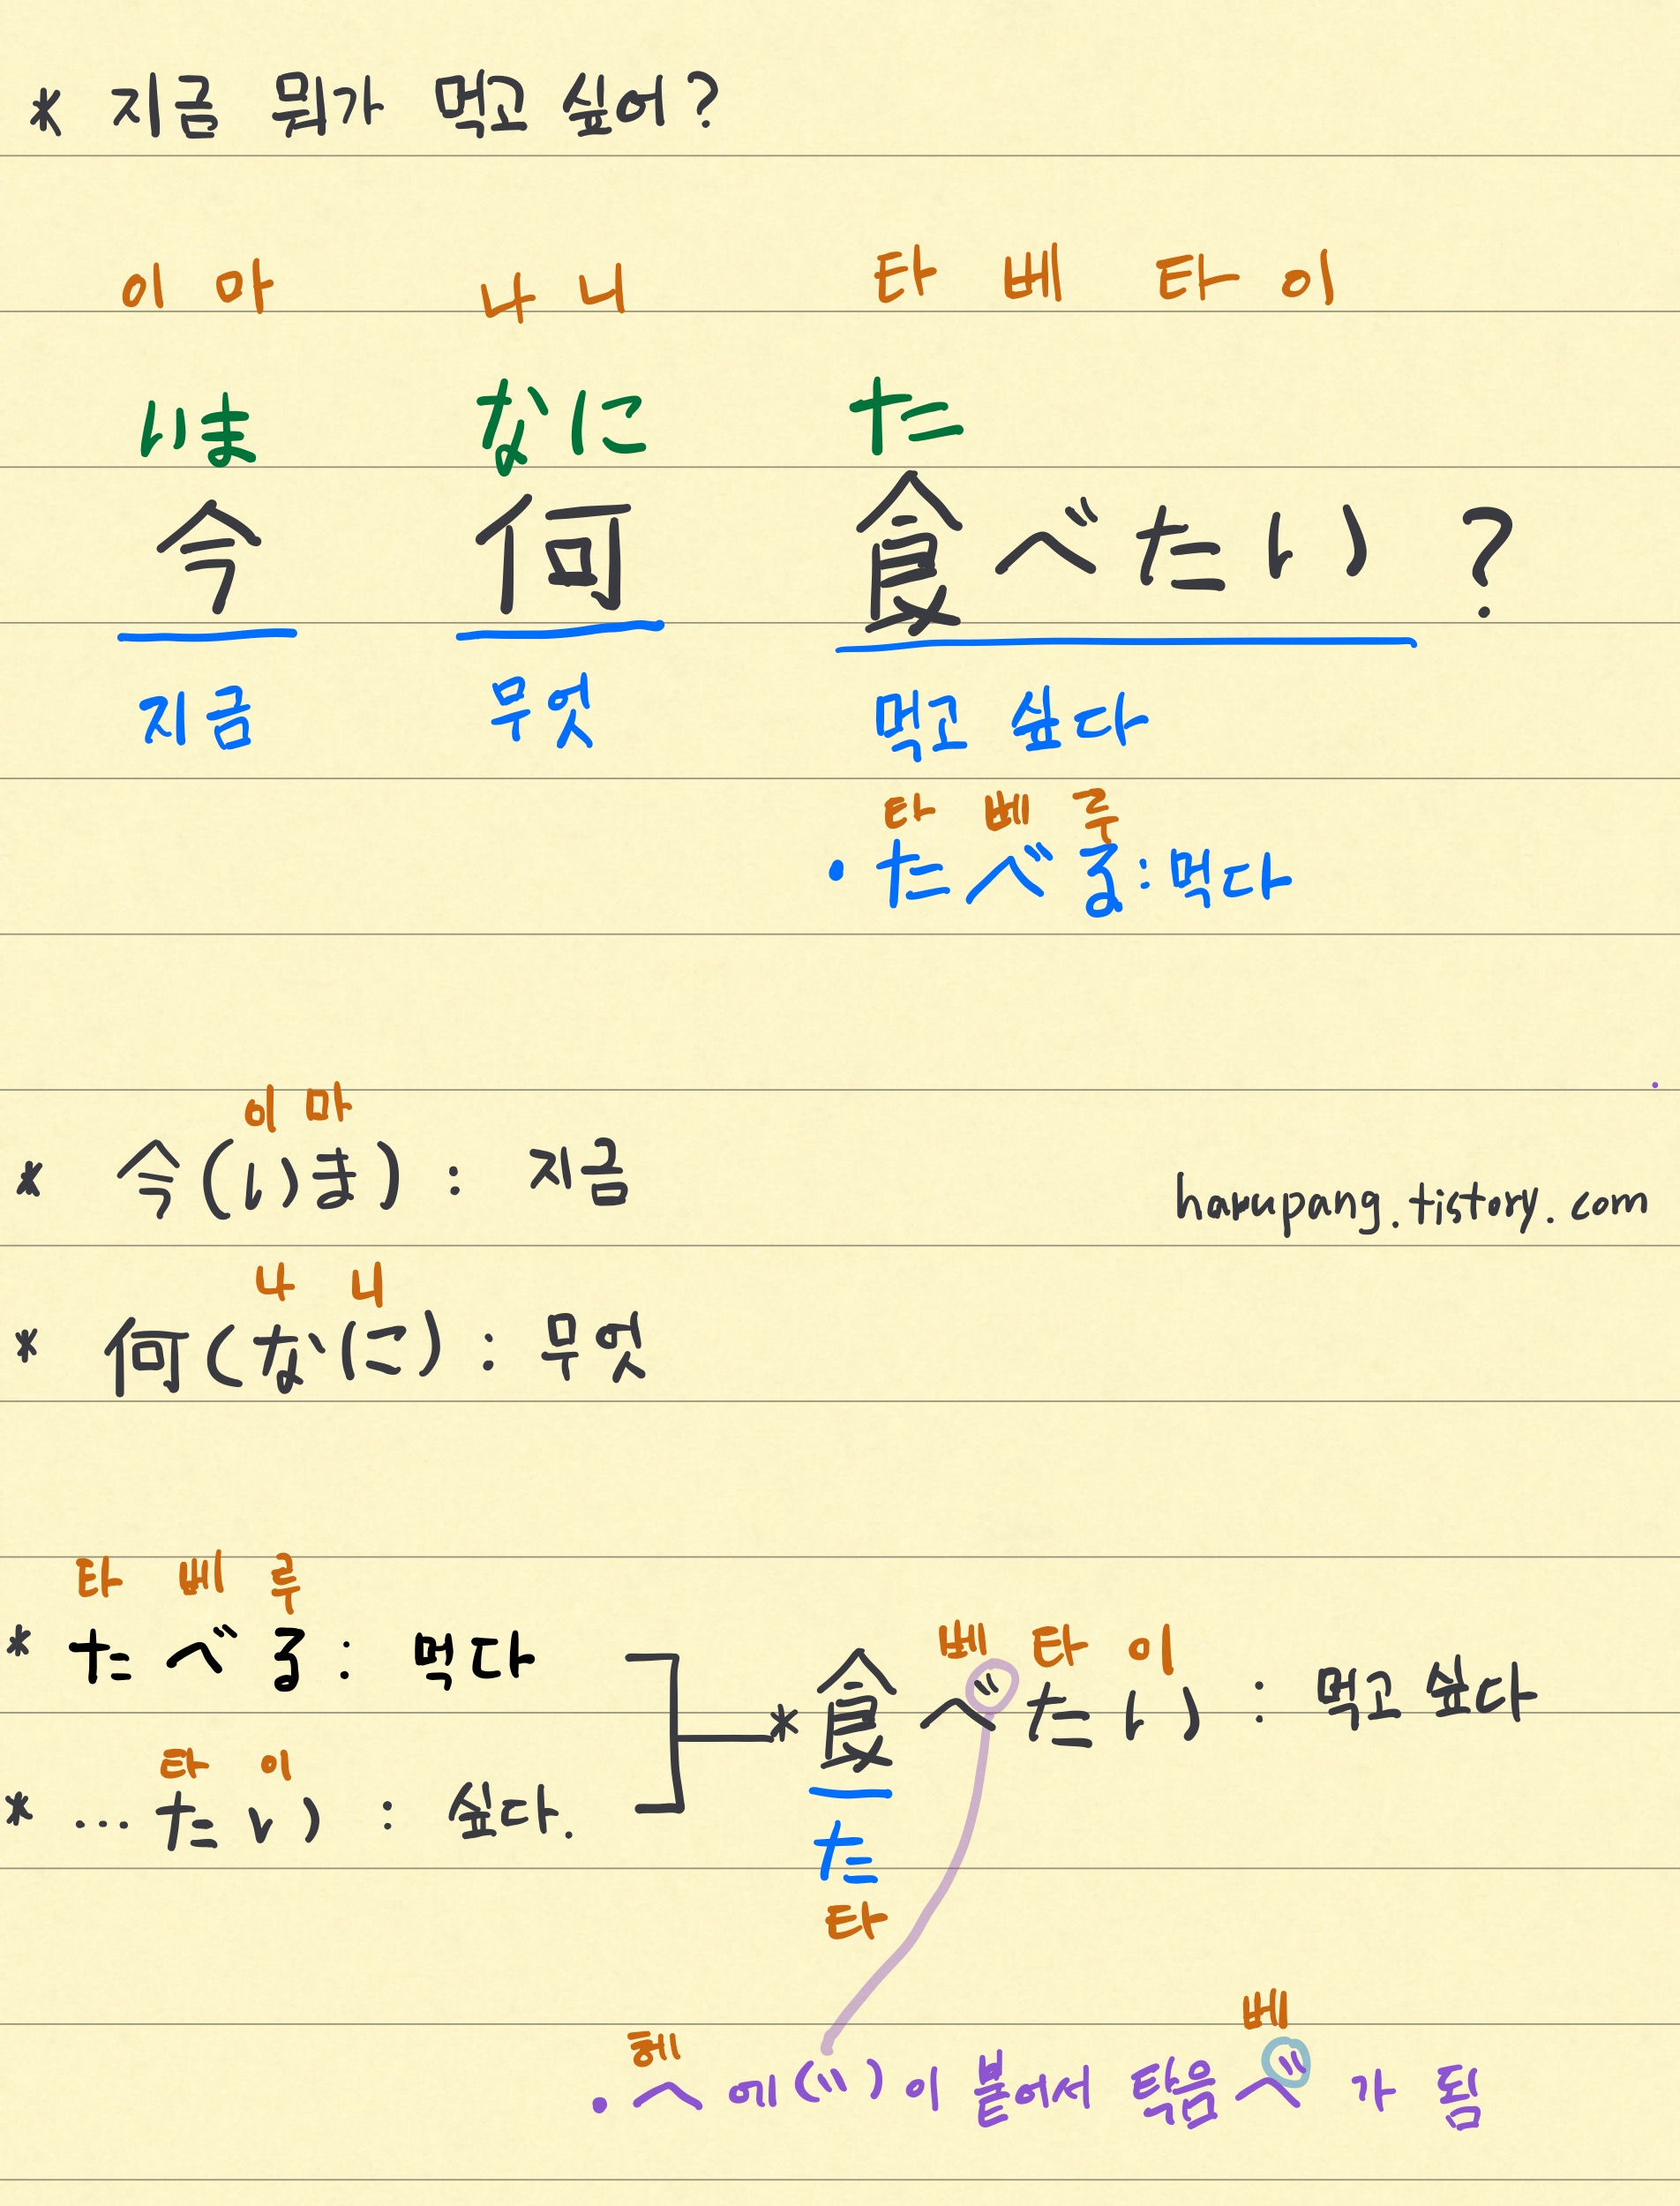 * 지금 뭐가 먹고 싶어?
이마 나니 타베타이
いま なに た
今 何 食べたい?
지금 무엇 먹고 싶다
타베루
• たべる: 먹다
이마
* 今(いま) : 지금
harupang.tistory.com
나니
* 何(なに) : 무엇
타베루
* たべる: 먹다
타이
* ...たい : 싶다.
베타이
* 食べたい : 먹고 싶다
た
타
헤 베
• へ에(〃)이 붙어서 탁음 べ가 됨